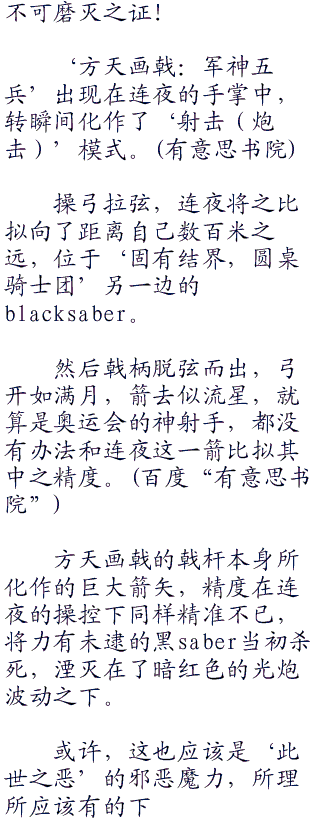 不可磨灭之证！
‘方天画戟：军神五
兵’出现在连夜的手掌中，
转瞬间化作了‘射击（炮
击）’模式。(有意思书院)
操弓拉弦，连夜将之比
拟向了距离自己数百米之
远，位于‘固有结界，圆桌
骑士团’另一边的
blacksaber。
然后戟柄脱弦而出，弓
开如满月，箭去似流星，就
算是奥运会的神射手，都没
有办法和连夜这一箭比拟其
中之精度。(百度“有意思书
院”)
方天画戟的戟杆本身所
化作的巨大箭矢，精度在连
夜的操控下同样精准不已，
将力有未逮的黑saber当初杀
死，湮灭在了暗红色的光炮
波动之下。
或许，这也应该是‘此
世之恶’的邪恶魔力，所理
所应该有的下